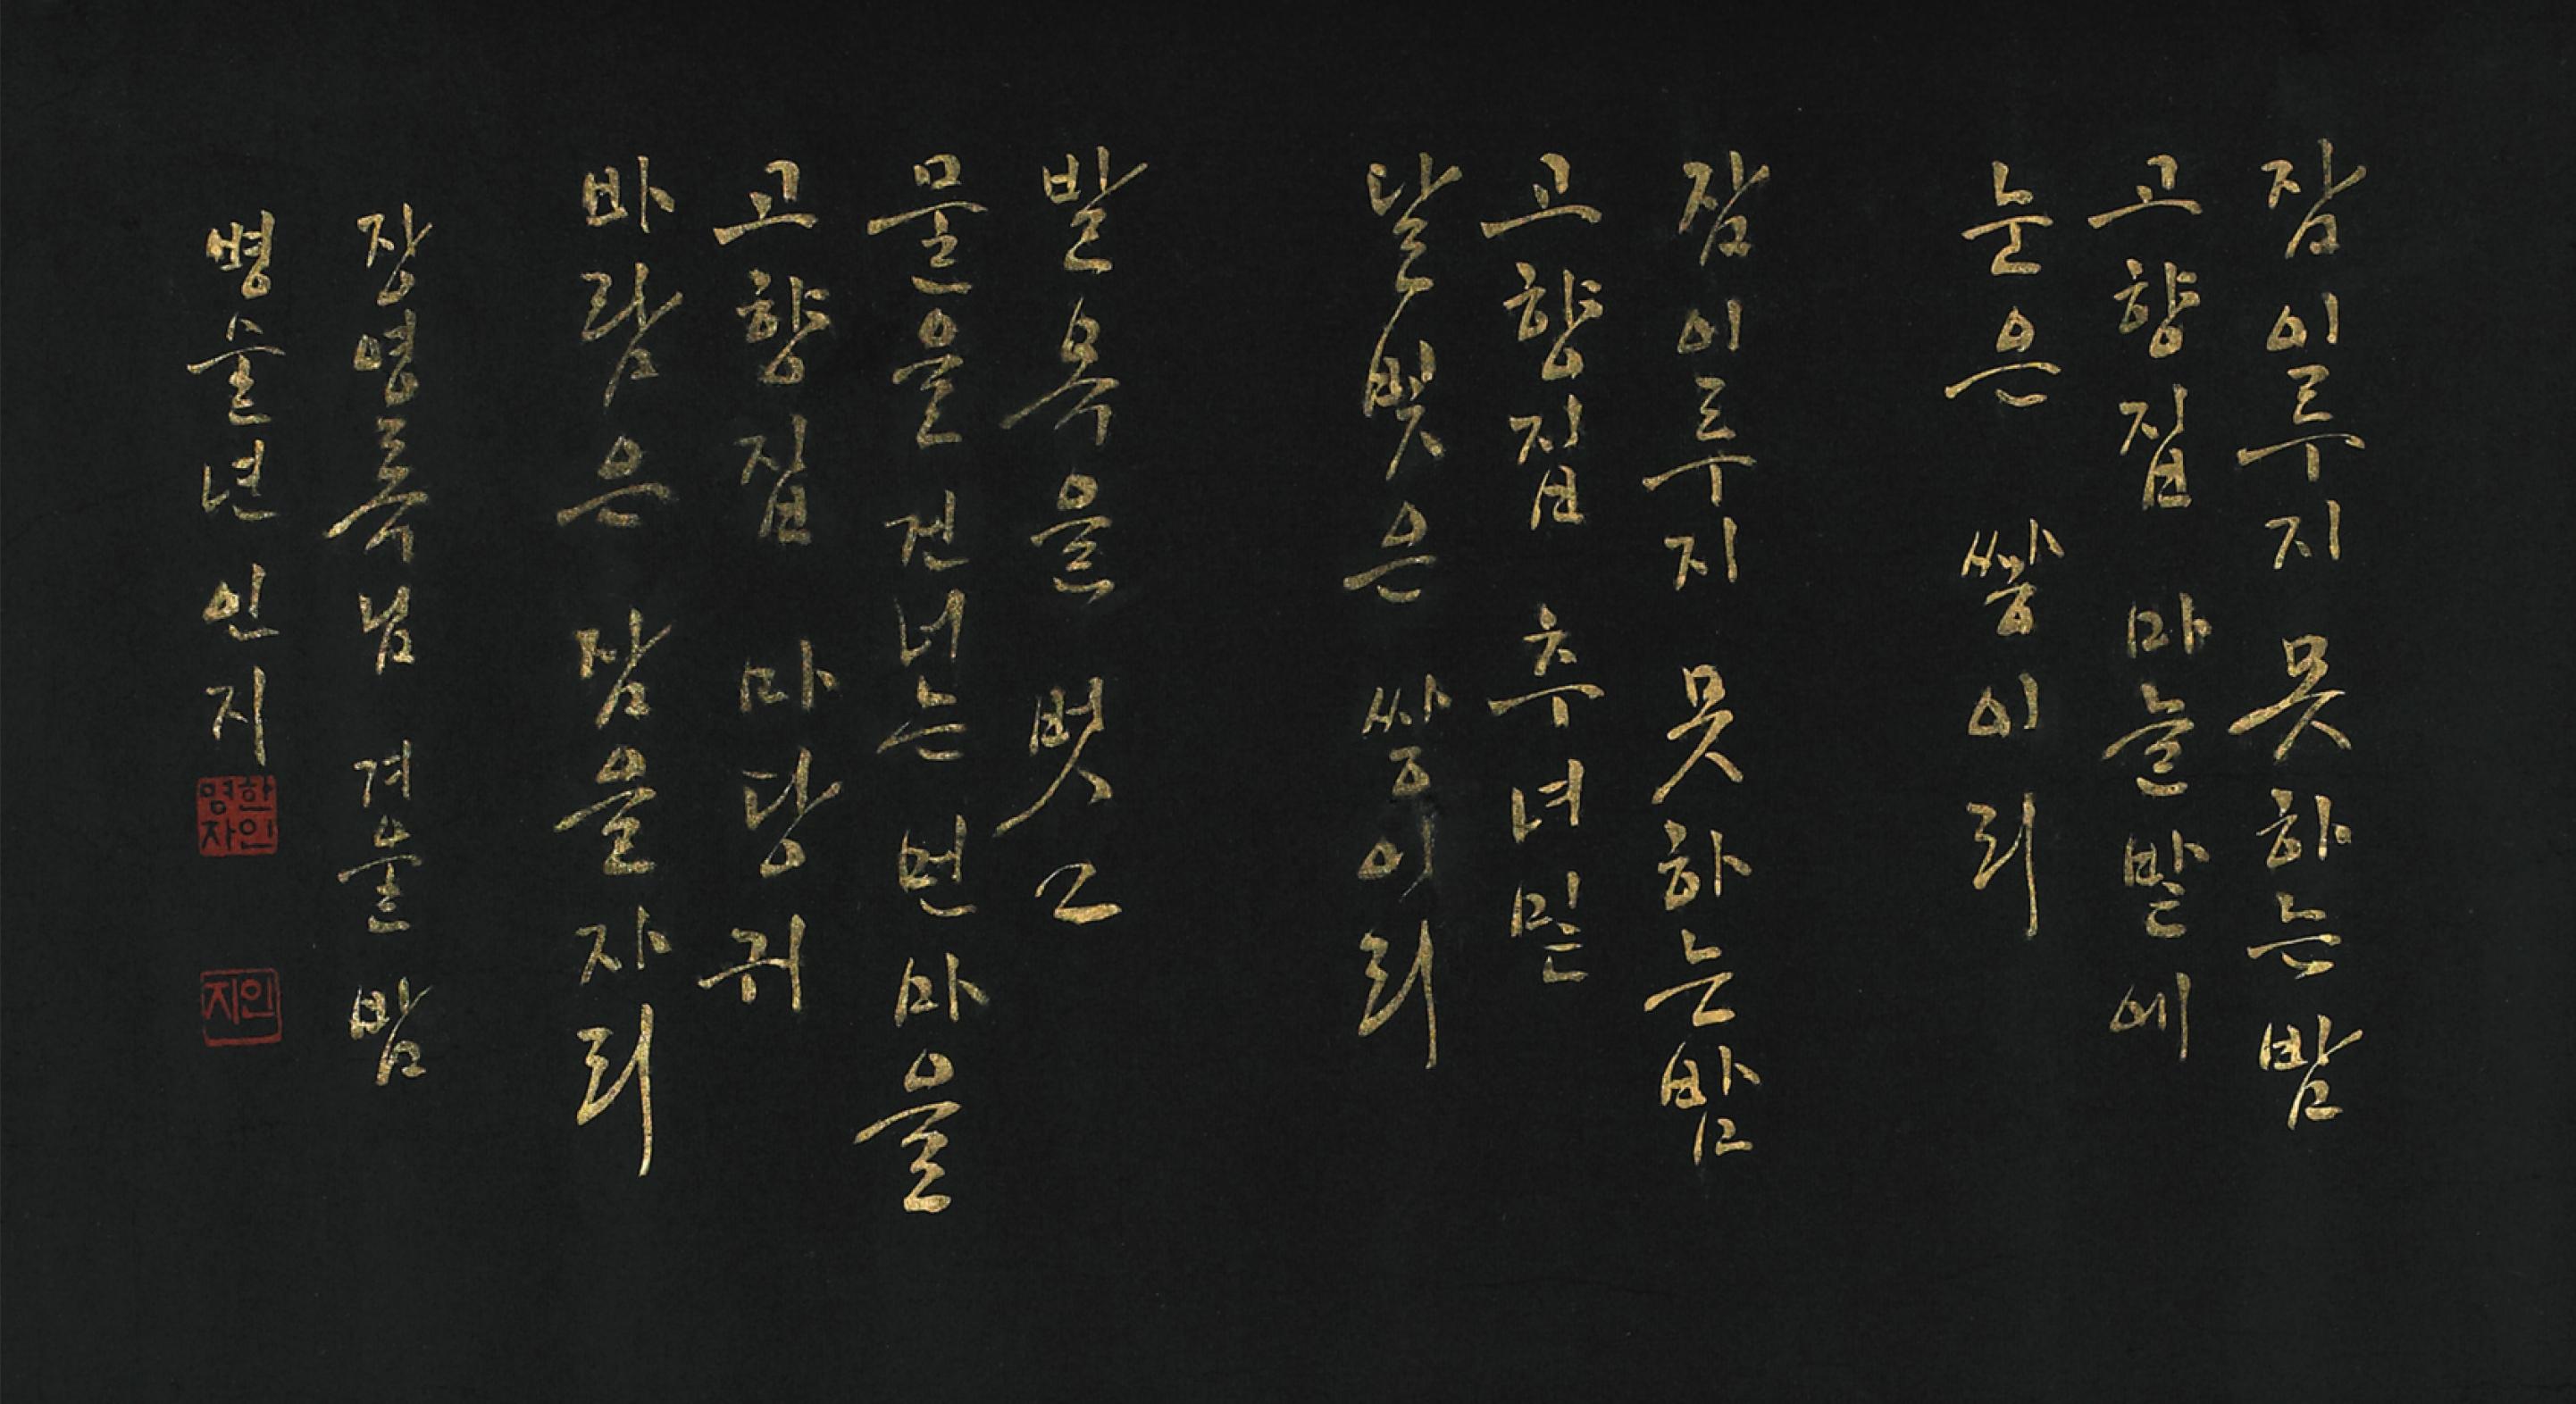 잠 이루지 못하는 밤
고향집 마늘밭에
눈은 쌓이리
잠 이루지 못하는 밤
고향집 추녀밑
달빛은 쌓이리
발목을 벗고
물을 건너는 먼 마을
고향집 마당귀
바람은 잠을 자리
장영록님 겨울 밤
병술년 인지
한인
명자
인지